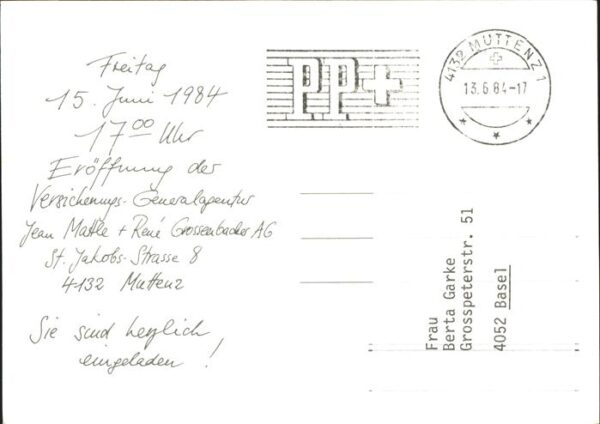 Freitag
15. Juni 1984
17⁰⁰ Uhr
Eröffnung der
Versicherungs-Generalagentur
Jean Mattle + René Grossenbacher AG
St. Jakobs-Strasse 8
4132 Muttenz
Sie sind herzlich
eingeladen!
P.P.
4132 MUTTENZ 1
13.6.84-17
Frau
Berta Garke
Grosspeterstr. 51
4052 Basel